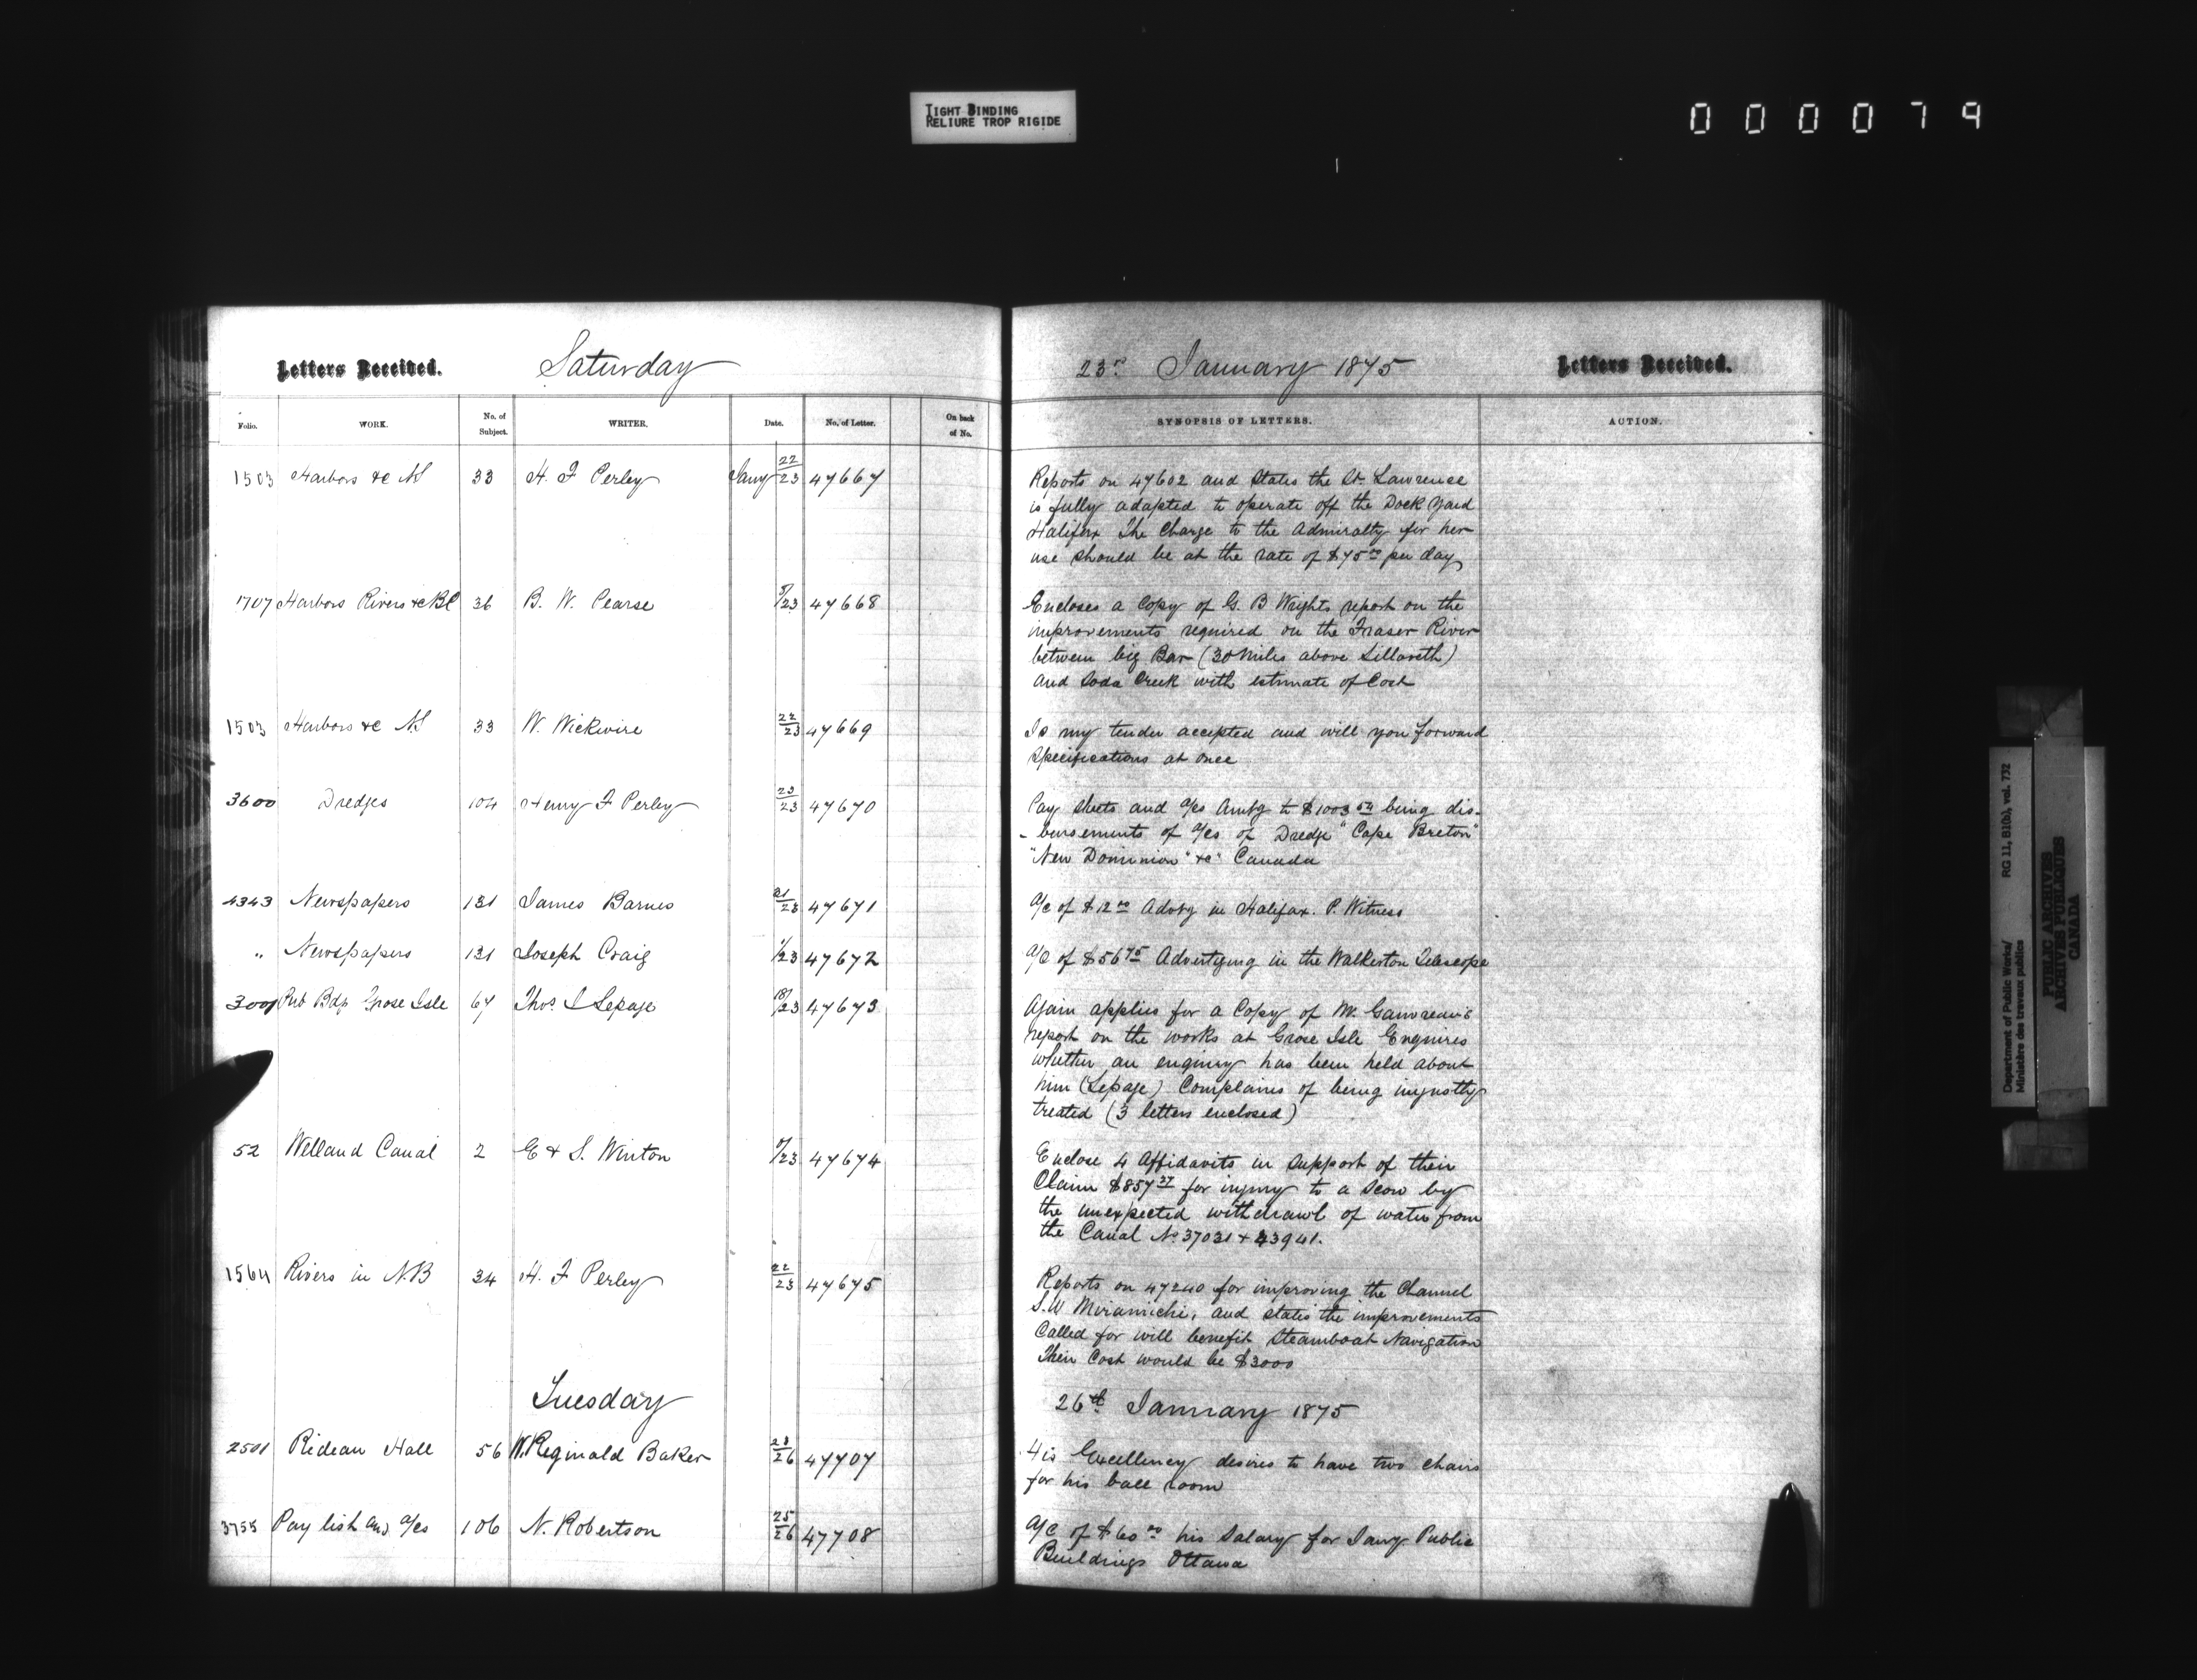 TIGHT BINDING
RELIURE TROP RIGIDE
000079
Letters Received. Saturday
Folio. WORK. No. of Subject. WRITER. Date. No. of Letter. On back of No.
1503 Harbors &c NS 33 H. F Perley Jany 22/23 47667
1707 Harbors Rivers &c BC 36 B. W. Pearse 5/23 47668
1503 Harbors &c NS 33 W. Wickwire 22/23 47669
3600 Dredges 104 Henry F Perley 23/23 47670
4343 Newspapers 131 James Barnes 21/23 47671
" Newspapers 131 Joseph Craig 1/23 47672
3001 Pub Bdg Grose Isle 67 Thos. I Lepage 18/23 47673
52 Welland Canal 2 E & S. Winton /23 47674
1564 Rivers in N.B 34 H. F Perley 22/23 47675
Tuesday
2501 Rideau Hall 56 W. Reginald Baker 23/26 47707
3755 Pay list and a/cs 106 N. Robertson 25/26 47708
23rd January 1875 Letters Received.
SYNOPSIS OF LETTERS. ACTION.
Reports on 47602 and States the St. Lawrence
is fully adapted to operate off the Dock Yard
Halifax The Charge to the Admiralty for her
use should be at the rate of $75.00 per day
Encloses a Copy of G. B Wrights report on the
improvements required on the Fraser River
between big Bar (30 Miles above Lillooeth)
and Soda Creek with estimate of Cost
Is my tender accepted and will you forward
Specifications at once
Pay sheets and a/cs Amtg to $1003 54 being dis-
-bursements of a/cs of Dredge "Cape Breton"
"New Dominion" &c" Canada
A/c of $12 00 Advtg in Halifax. P. Witness
A/C of $56 75 Advertizing in the Walkerton Telescope
Again applies for a Copy of Mr. Gauvreau's
report on the works at Grose Isle Enquires
whether an enquiry has been held about
him (Lepage) Complains of being unjustly
treated (3 letters enclosed)
Enclose 4 Affidavits in Support of their
Claim $857 37 for injury to a Scow by
the unexpected withdrawl of water from
the Canal No 37031 & 43941.
Reports on 47240 for improving the Channel
S.W Miramichi, and states the improvements
Called for will benefit Steamboat Navigation
Their Cost would be $3000
26th January 1875
His Excellency desires to have two chairs
for his ball room
A/C of $60 00 his Salary for Jany Public
Buildings Ottawa
Department of Public Works/ RG 11, B1(b), vol. 732
Ministère des travaux publics
PUBLIC ARCHIVES
ARCHIVES PUBLIQUES
CANADA